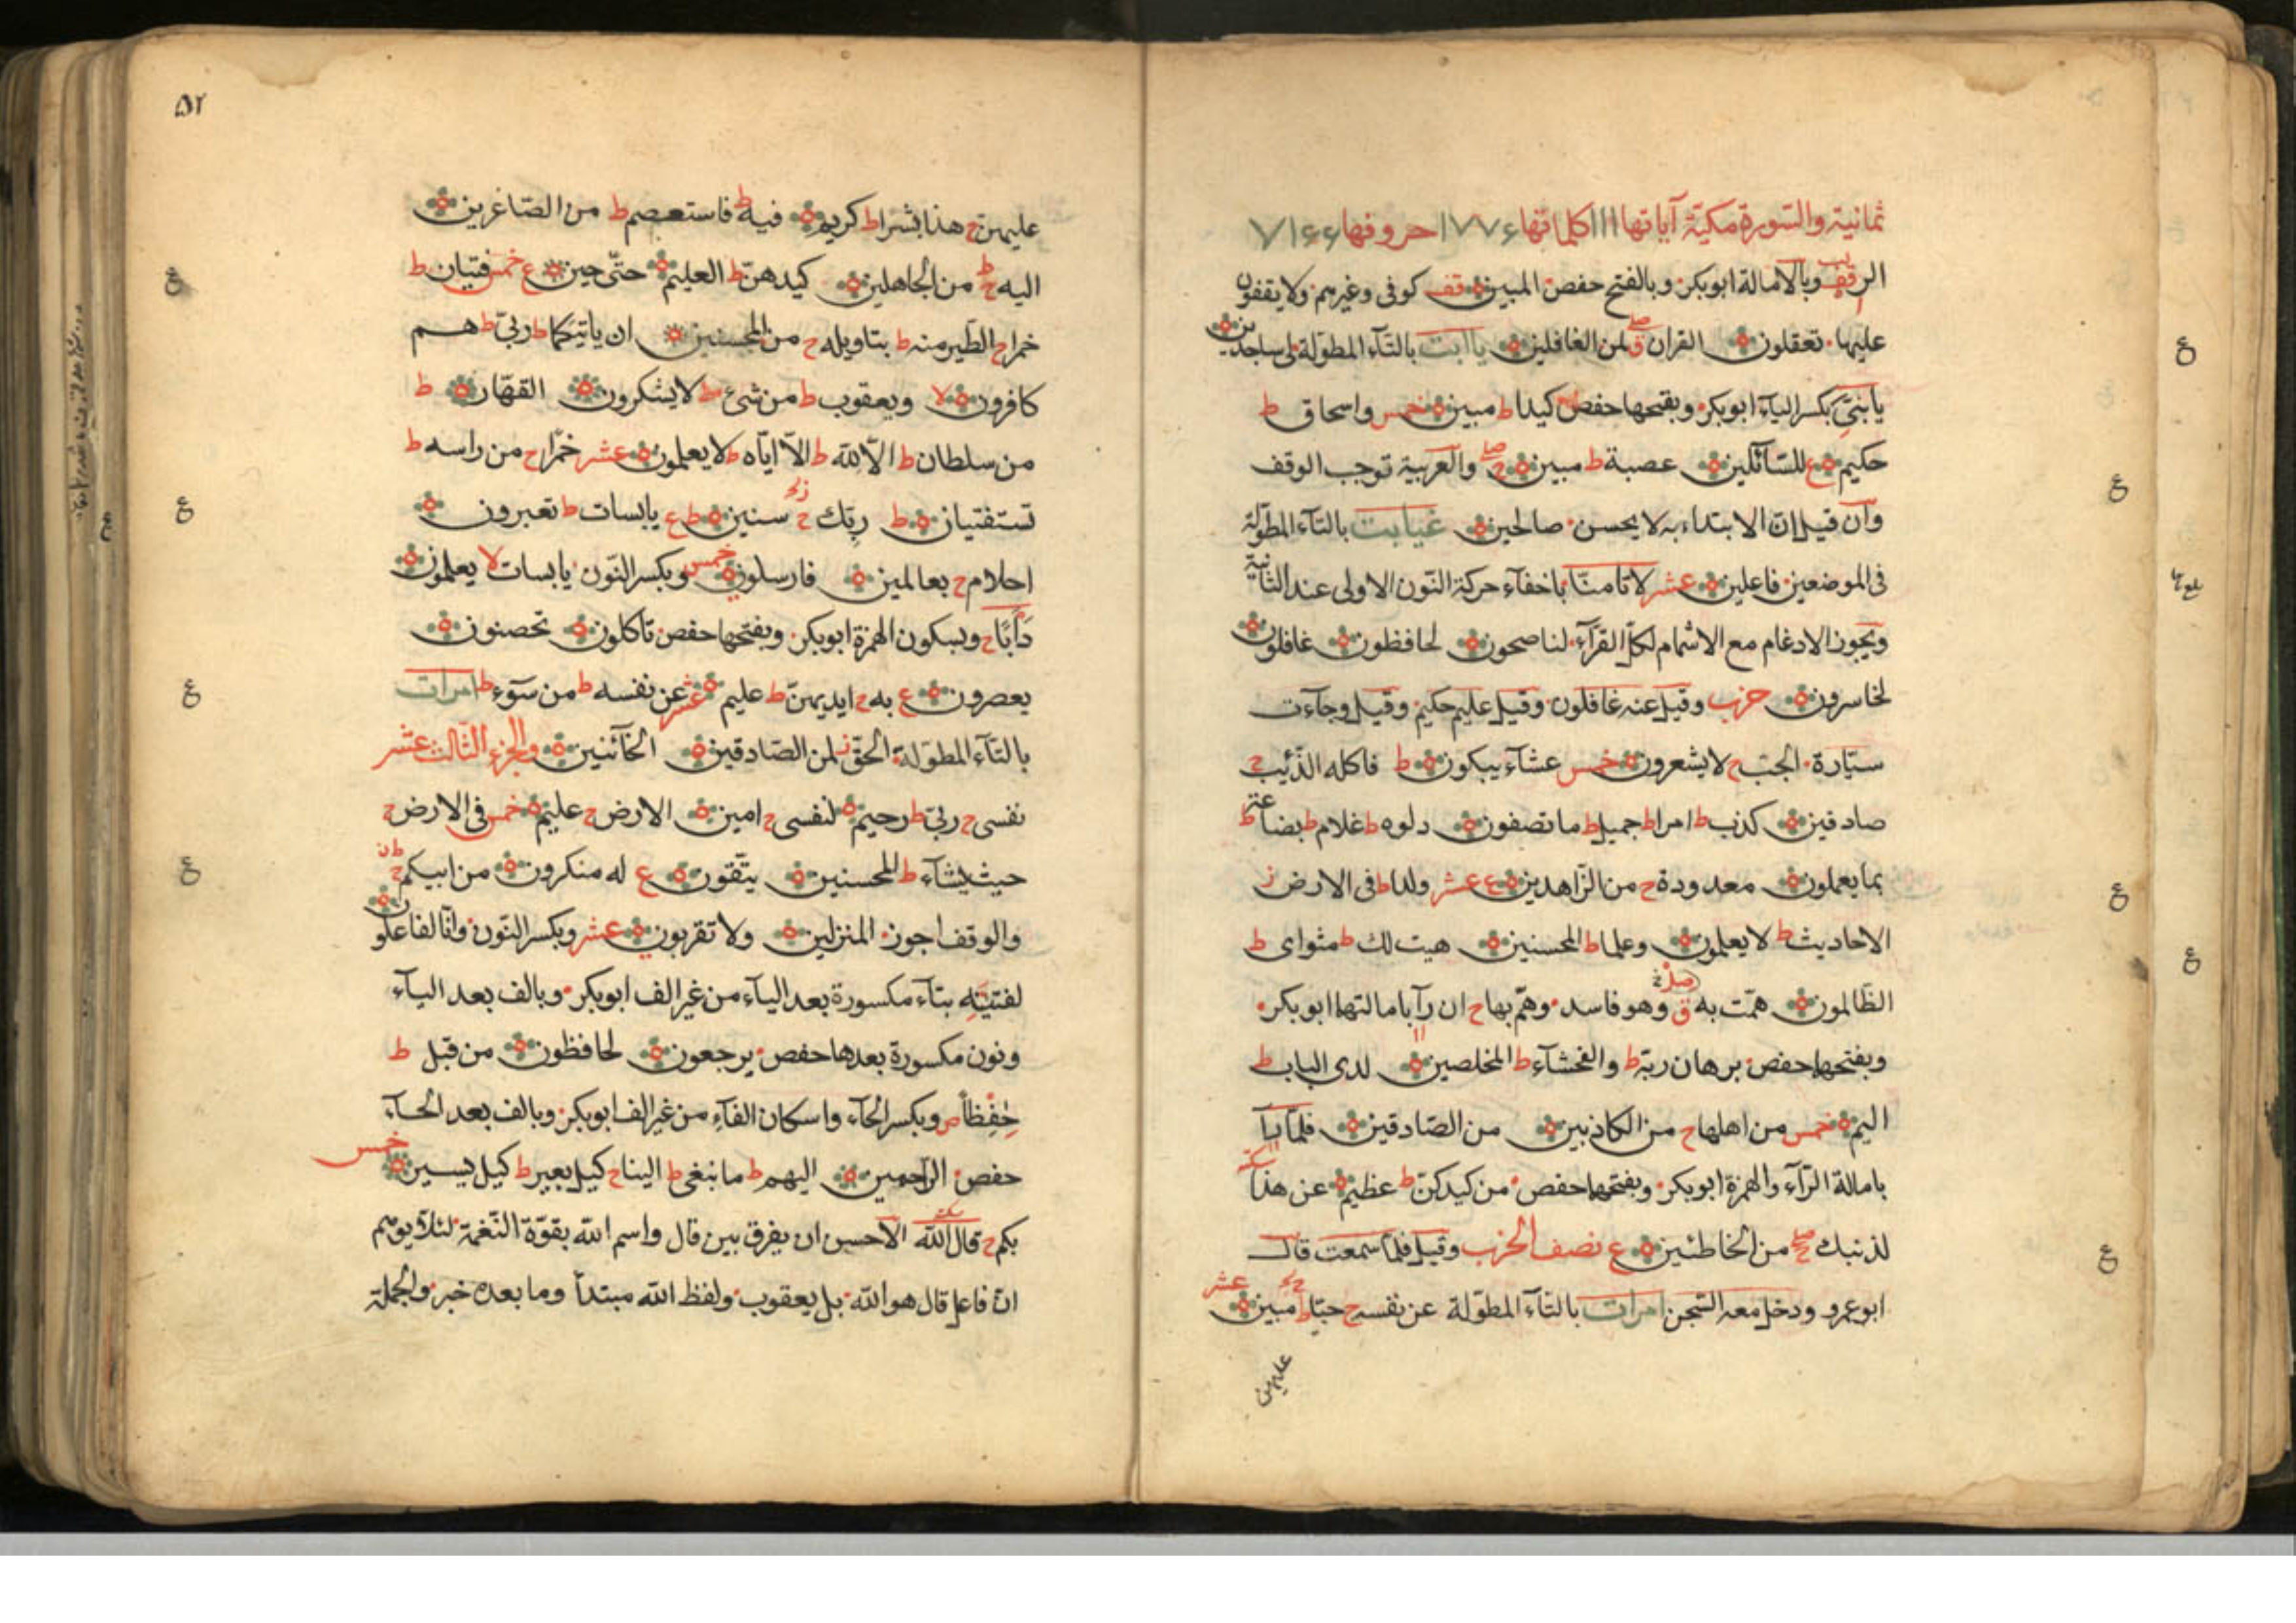 ثمانية والسورة مكية آياتها ١١١ كلماتها ١٧٧٦ حروفها ٧١٦٦
الر قف وبالامالة ابوبكر وبالفتح حفص المبين قف كوفى وغيرهم ولا يقفون
عليها تعقلون القران ق لمن الغافلين يا ابت بالتآء المطوّلة لى ساجدين
يا بنىّ بكسر اليآء ابوبكر وبفتحها حفص كيدا ط مبين خمس واسحاق ط
حكيم ع للسّآئلين عصبة ط مبين ج صلے والعربية توجب الوقف
وان قيل انّ الابتداء به لا يحسن صالحين غيابت بالتآء المطوّلة
فى الموضعين فاعلين عشر لا تامنّا باخفآء حركة النّون الاولى عند الثّانية
ويجوز الادغام مع الاشمام لكلّ القرّآء لناصحون لحافظون غافلون
لخاسرون حزب وقيل عنه غافلون وقيل عليم حكيم وقيل وجآءت
سيّارة الجبّ ج لا يشعرون خمس عشآء يبكون ط فاكله الذّئب ج
صادقين كذب ط امرا ط جميل ط ما تصفون دلوه ط غلام ط بضاعة ط
بما يعملون معدودة ج من الزّاهدين ع عشر ولدا ط فى الارض ز
الاحاديث ط لا يعلمون وعلما ط المحسنين هيت لك ط مثواى ط
الظّالمون همّت به ق وهو فاسد وهمّ بها ج ان رآ بامالتها ابوبكر
وبفتحها حفص برهان ربّه ط والفحشآء ط المخلصين لدى الباب ط
اليم خمس من اهلها ج من الكاذبين من الصّادقين فلمّا رآ
بامالة الرّآء والهمزة ابوبكر وبفتحها حفص من كيدكنّ ط عظيم عن هذا سكتة
لذنبك صلے من الخاطئين ع نصف الحزب وقيل فلمّا سمعت قال
ابوعمرو ودخل معه السّجن امرات بالتآء المطوّلة عن نفسه ج حبّا ط مبين عشر
عليهن
٥٢
عليهنّ ج هذا بشرا ط كريم فيه ط فاستعصم ط من الصّاغرين
اليه ج ط من الجاهلين كيدهنّ ط العليم حتّى حين ع خمس فتيان ط
خمرا ج الطّير منه ط بتاويله ج من المحسنين ان ياتيكما ط ربّى ط هم
كافرون لا ويعقوب ط من شىء ط لا يشكرون القهّار ط
من سلطان ط الّا لله ط الّا ايّاه ط لا يعلمون عشر خمرا ج من راسه ط
تستفتيان ط ربّك ج سنين ط ع يابسات ط تعبرون
احلام ج بعالمين فارسلون خمس وبكسر النّون يابسات لا يعلمون
دأبا ج وبسكون الهمزة ابوبكر وبفتحها حفص تاكلون تحصنون
يعصرون ع به ج ايديهنّ ط عليم عشر عن نفسه ط من سوٓء ط امرات
بالتآء المطوّلة الحقّ ز لمن الصّادقين الخآئنين والجزء الثّالث عشر
نفسى ج ربّى ط رحيم لنفسى ج امين الارض ج عليم خمس فى الارض ج
حيث يشآء ط المحسنين يتّقون ع له منكرون من ابيكم ج
والوقف اجوز المنزلين ولا تقربون عشر وبكسر النّون وانّا لفاعلون
لفتيته بتآء مكسورة بعد اليآء من غير الف ابوبكر وبالف بعد اليآء
ونون مكسورة بعدها حفص يرجعون لحافظون من قبل ط
حفظا ص وبكسر الحآء واسكان الفآء من غير الف ابوبكر وبالف بعد الحآء
حفص الرّاحمين اليهم ط ما نبغى ط الينا ج كيل بعير ط كيل يسير خمس
بكم ج قال الله الاحسن ان يفرق بين قال واسم الله بقوّة النّغمة لئلّا يوهم
انّ فاعل قال هو الله بل يعقوب ولفظ الله مبتدأ وما بعده خبر والجملة